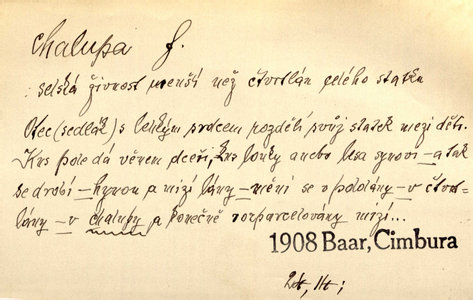 chalupa f.
selská živnost menší než čtvrtlán celého statku
Otec (sedlák) s lehkým srdcem rozdělí svůj statek mezi děti.
Kus pole dá věnem dceři, kus louky anebo lesa synovi – a tak
se drobí – hynou a mizí lány – mění se v půllány – v čtvrt-
lány – v chalupy a konečně rozparcelovány mizí...
1908 Baar, Cimbura